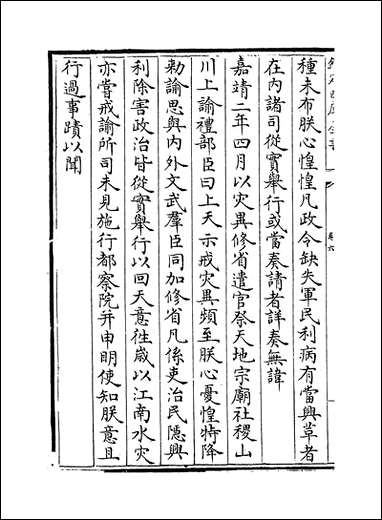 種未布朕心惶惶凡政令缺失軍民利病有當興革者
在內諸司從實舉行或當奏請者詳奏無諱
嘉靖二年四月以災異修省遣官祭天地宗廟社稷山
川上諭禮部臣曰上天示戒災異頻至朕心憂惶特降
勅諭思與內外文武羣臣同加修省凡係吏治民隱興
利除害政治皆從實舉行以回天意徃歲以江南水災
亦嘗戒諭所司未見施行都察院并申明使知朕意且
行過事蹟以聞